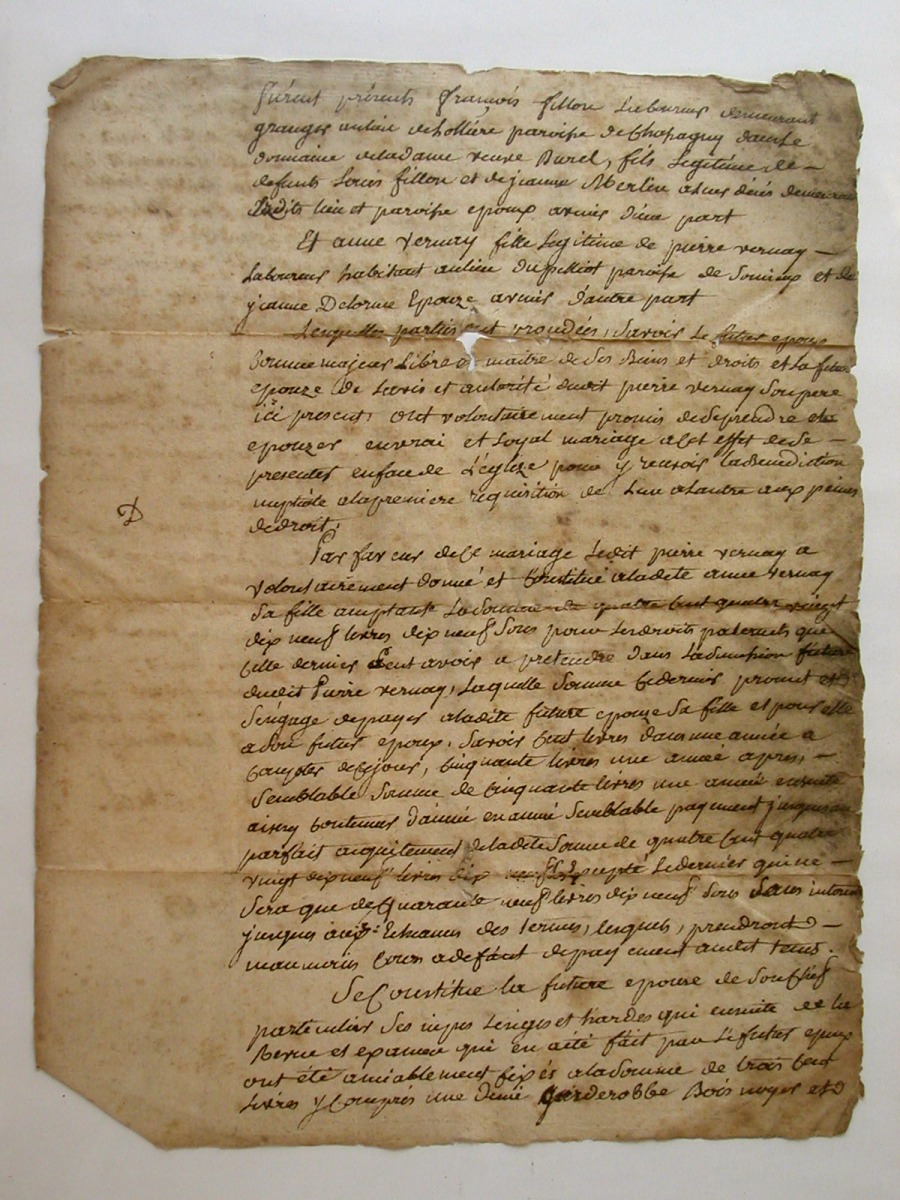 furent présents françois fillon Laboureur demeurant
granger au lieu de hollière paroisse de Chapagny dans le
domaine de la dame veuve Burel, fils Legitime de —
defunts Louis fillon et de jeanne Merlin a leur décès demeurant
lieu et paroisse epoux avenir d'une part
Et anne vernay fille Legitime de pierre vernay —
Laboureur habitant au lieu du pilliot paroisse de Soucieux et de
jeanne Delorme Epouze avenir d'autre part
Lesquelles parties ont Savoir Le futur epoux
Comme majeur Libre & maitre de Ses Biens et droits et La future
epouze de Lavis et autorité dudit pierre vernay Son pere
ici présent, ont volontairement promis de Se prendre et
epouzer en vrai et Loyal mariage a Cet effet de Se —
presenter en face de L'églize pour y recevoir La Benediction
nuptiale a la premiere requisition de L'un a Lautre aux peines
de droit,
D
Par faveur de Ce mariage Ledit pierre vernay a
volontairement donné et Constitué a ladite anne vernay
Sa fille La Somme de quatre Cent quatre vingt
dix neuf livres dix neuf Sous pour Les droits paternels que
Cette derniere peut avoir a prétendre dans La Succession future
dudit Pierre vernay, Laquelle Somme Ce dernier promet et
S'engage de payer a ladite future epouze Sa fille et pour elle
a Son futur epoux, Savoir Cent livres dans une année a
Compter de Ce jour, Cinquante livres une année apres, —
Semblable Somme de Cinquante livres une année ensuite
ainsy Continuer d'année en année Semblable payement jusques au
parfait acquitement de ladite Somme de quatre Cent quatre
vingt dix neuf livres dix neuf Sols Excepté Le dernier qui ne —
Sera que de Quarante neuf livres dix neuf Sous Sans interest
jusques aux Echeances des termes, lesquels, prendront —
neanmoins Cours a defaut de payement audit tems.
Se Constitue la future epouze de Son Chef
particulier Ses nipes Linges et hardes qui ensuite de la
Revue et examen qui en a été fait par Le futur epoux
ont été amiablement fixés a la Somme de trois Cent
Livres y Compris une demi garderobbe Bois noyer et